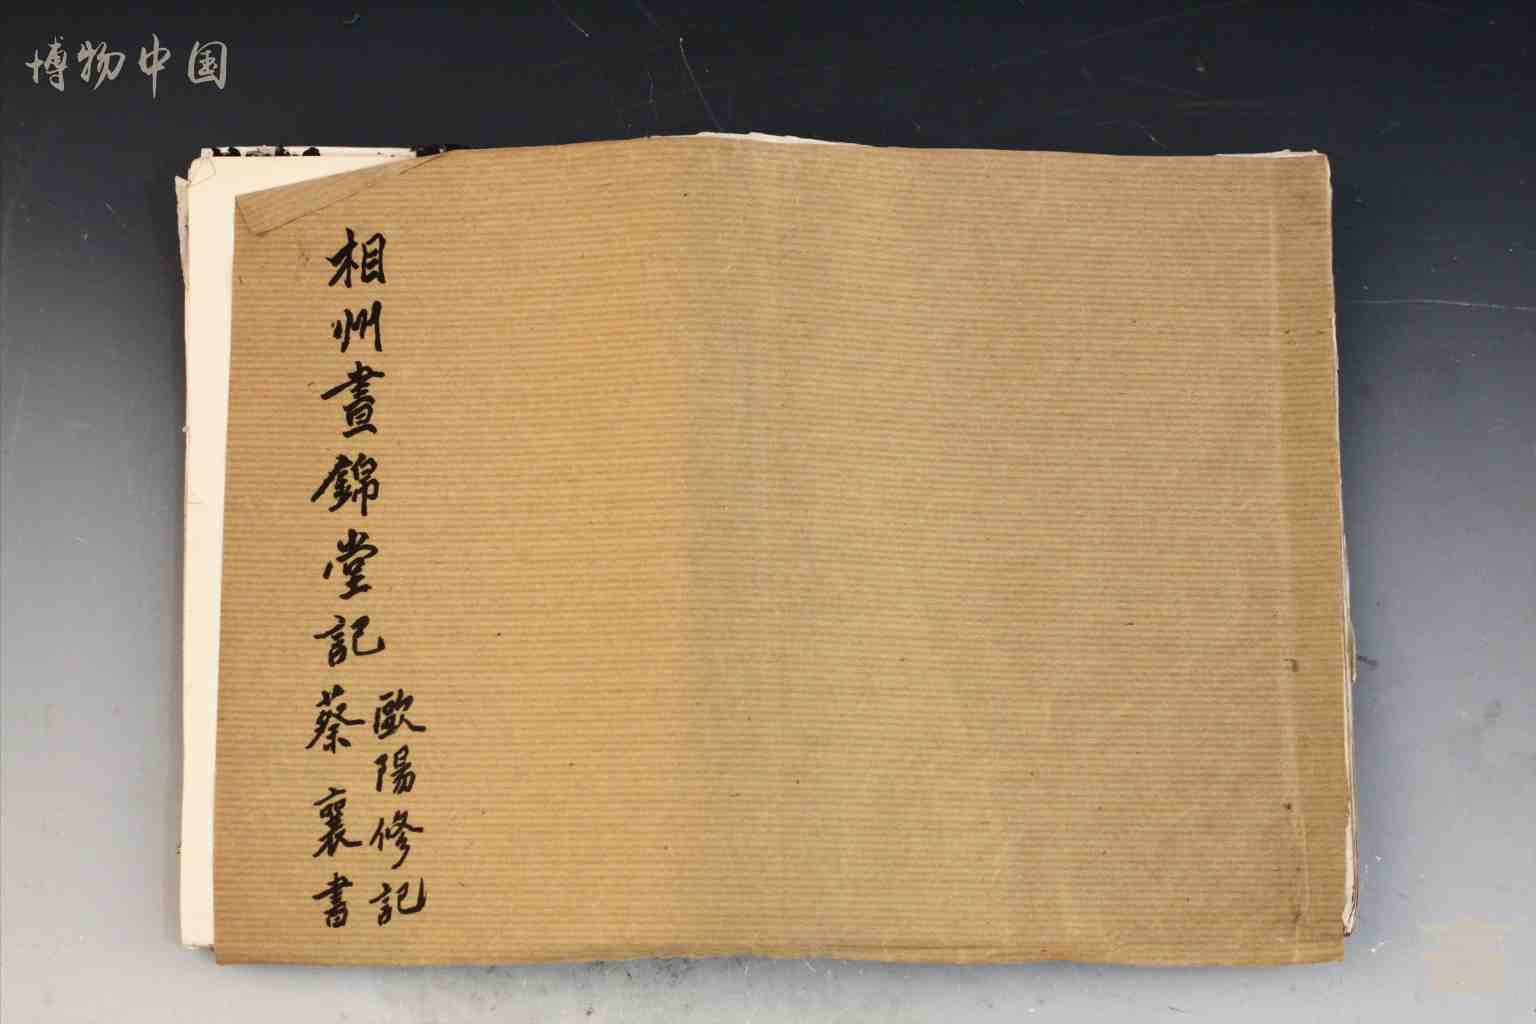 博物中国
相州晝錦堂記
歐陽修記
蔡襄書